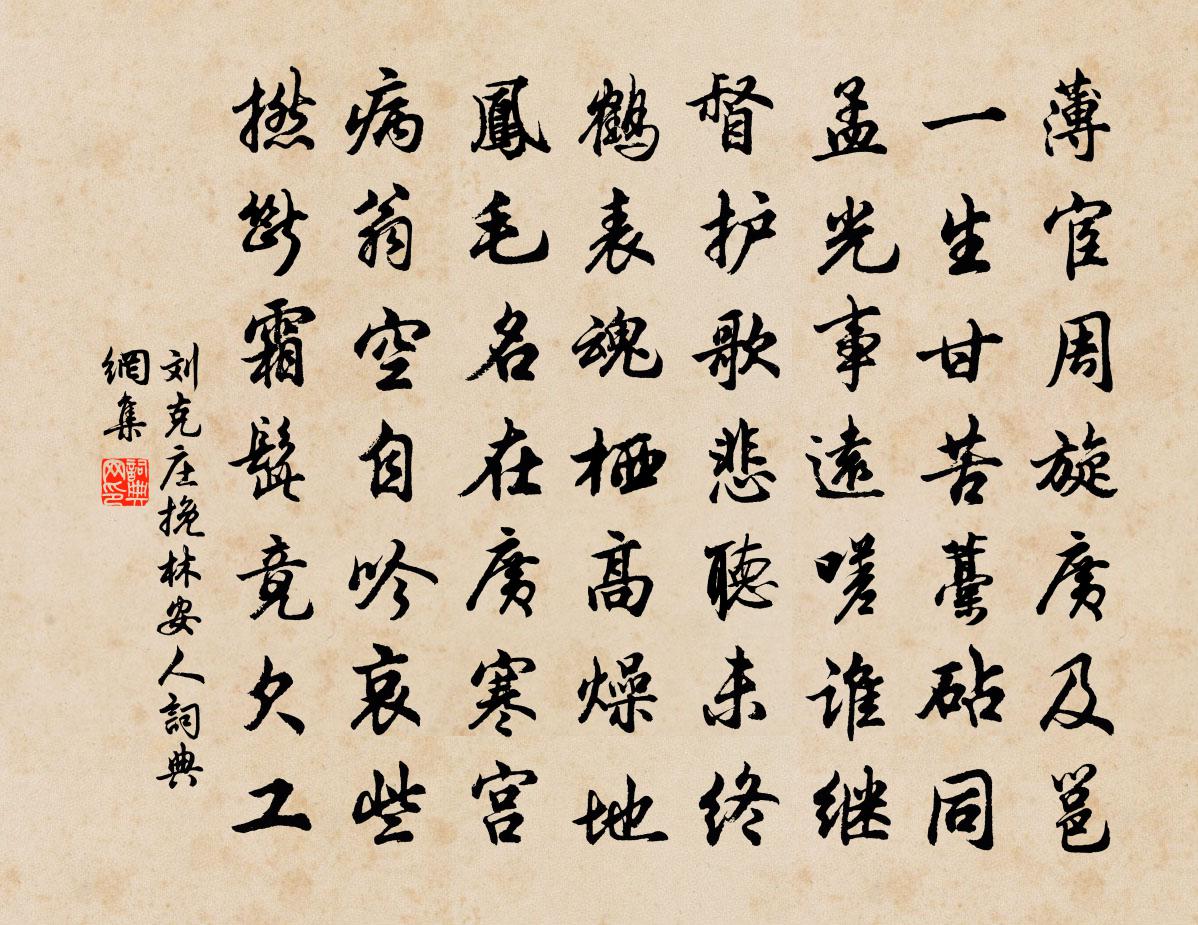 薄宦周旋廣及邕
一生甘苦藁砧同
孟光事遠嗟誰继
督护歌悲聽未终
鶴表魂栖高燥地
鳳毛名在廣寒宫
病翁空自吟哀些
撚斷霜髭竟欠工
刘克庄挽林安人詞典
網集
詞典
网印